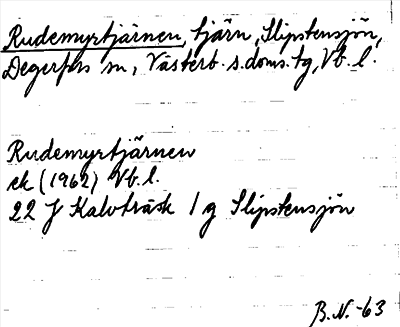 Rudemyrtjärnen, tjärn, Slipstensjön,
Degerfors sn, Västerb. s. doms. tg, Vb. l.
Rudemyrtjärnen
ek (1962) Vb. l.
22 J Kalvträsk 1 g Slipstensjön
B.N. -63